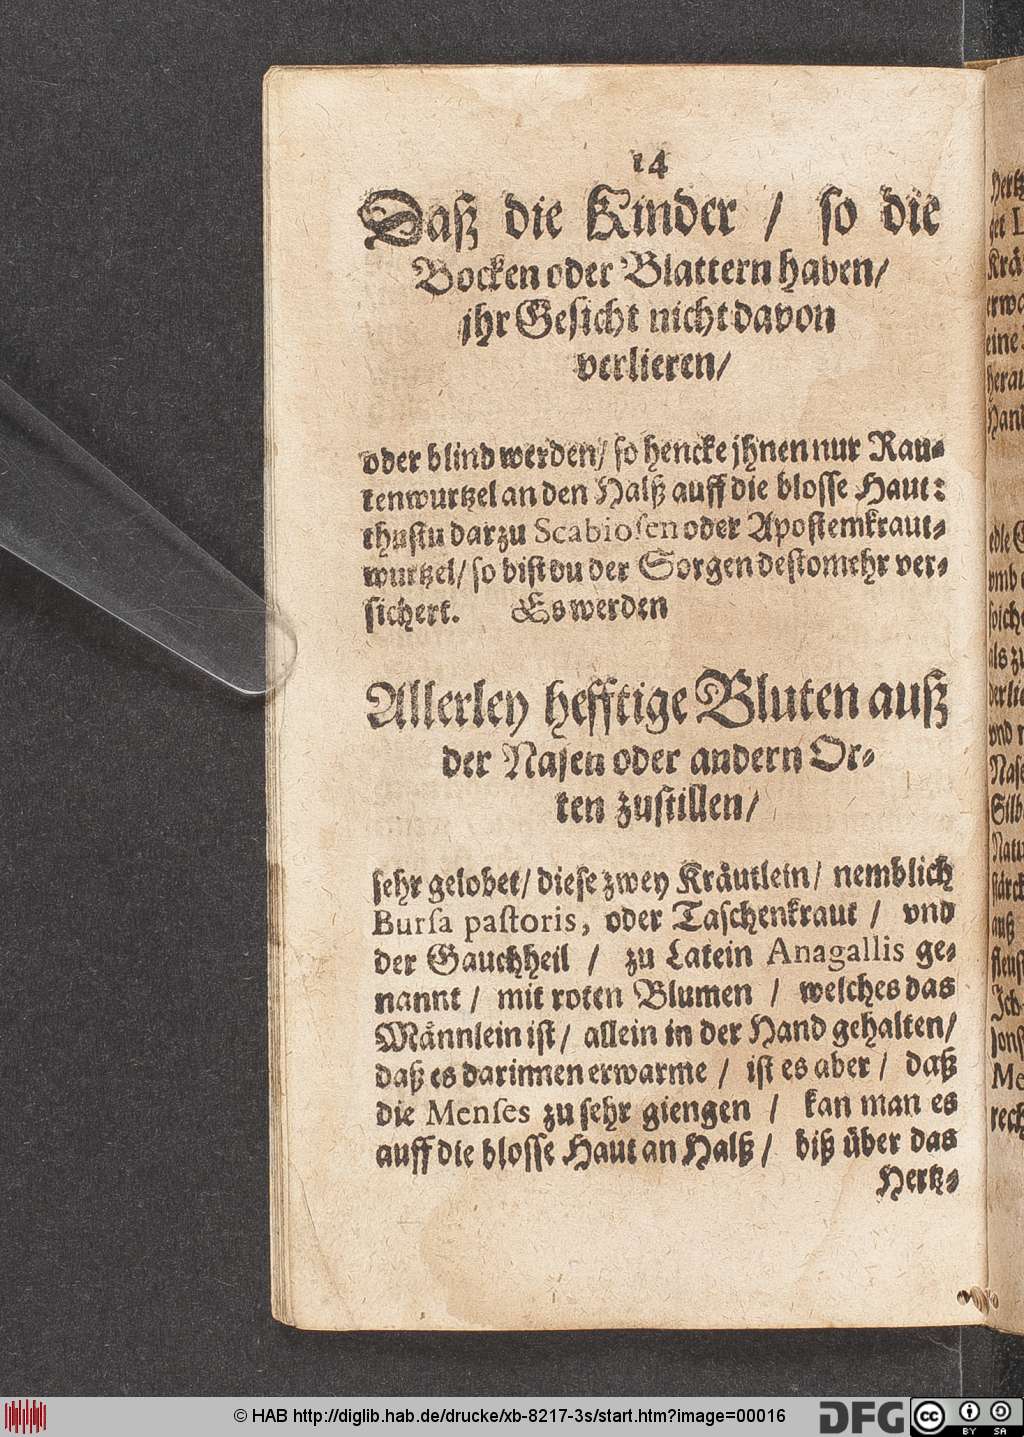 14
Daß die Kinder / so die
Bocken oder Blattern haben/
jhr Gesicht nicht davon
verlieren/
oder blind werden/ so hencke jhnen nur Rau-
tenwurtzel an den Halß auff die blosse Haut:
thustu darzu Scabiosen oder Apostemkraut-
wurtzel/ so bist du der Sorgen destomehr ver-
sichert. Es werden
Allerley hefftige Bluten auß
der Nasen oder andern Or-
ten zustillen/
sehr gelobet/ diese zwey Kräutlein/ nemblich
Bursa pastoris, oder Taschenkraut / vnd
der Gauchheil / zu Latein Anagallis ge-
nannt / mit roten Blumen / welches das
Männlein ist/ allein in der Hand gehalten/
daß es darinnen erwarme / ist es aber / daß
die Menses zu sehr giengen / kan man es
auff die blosse Haut an Halß / biß über das
Hertz-
© HAB http://diglib.hab.de/drucke/xb-8217-3s/start.htm?image=00016
DFG
cc
BY SA